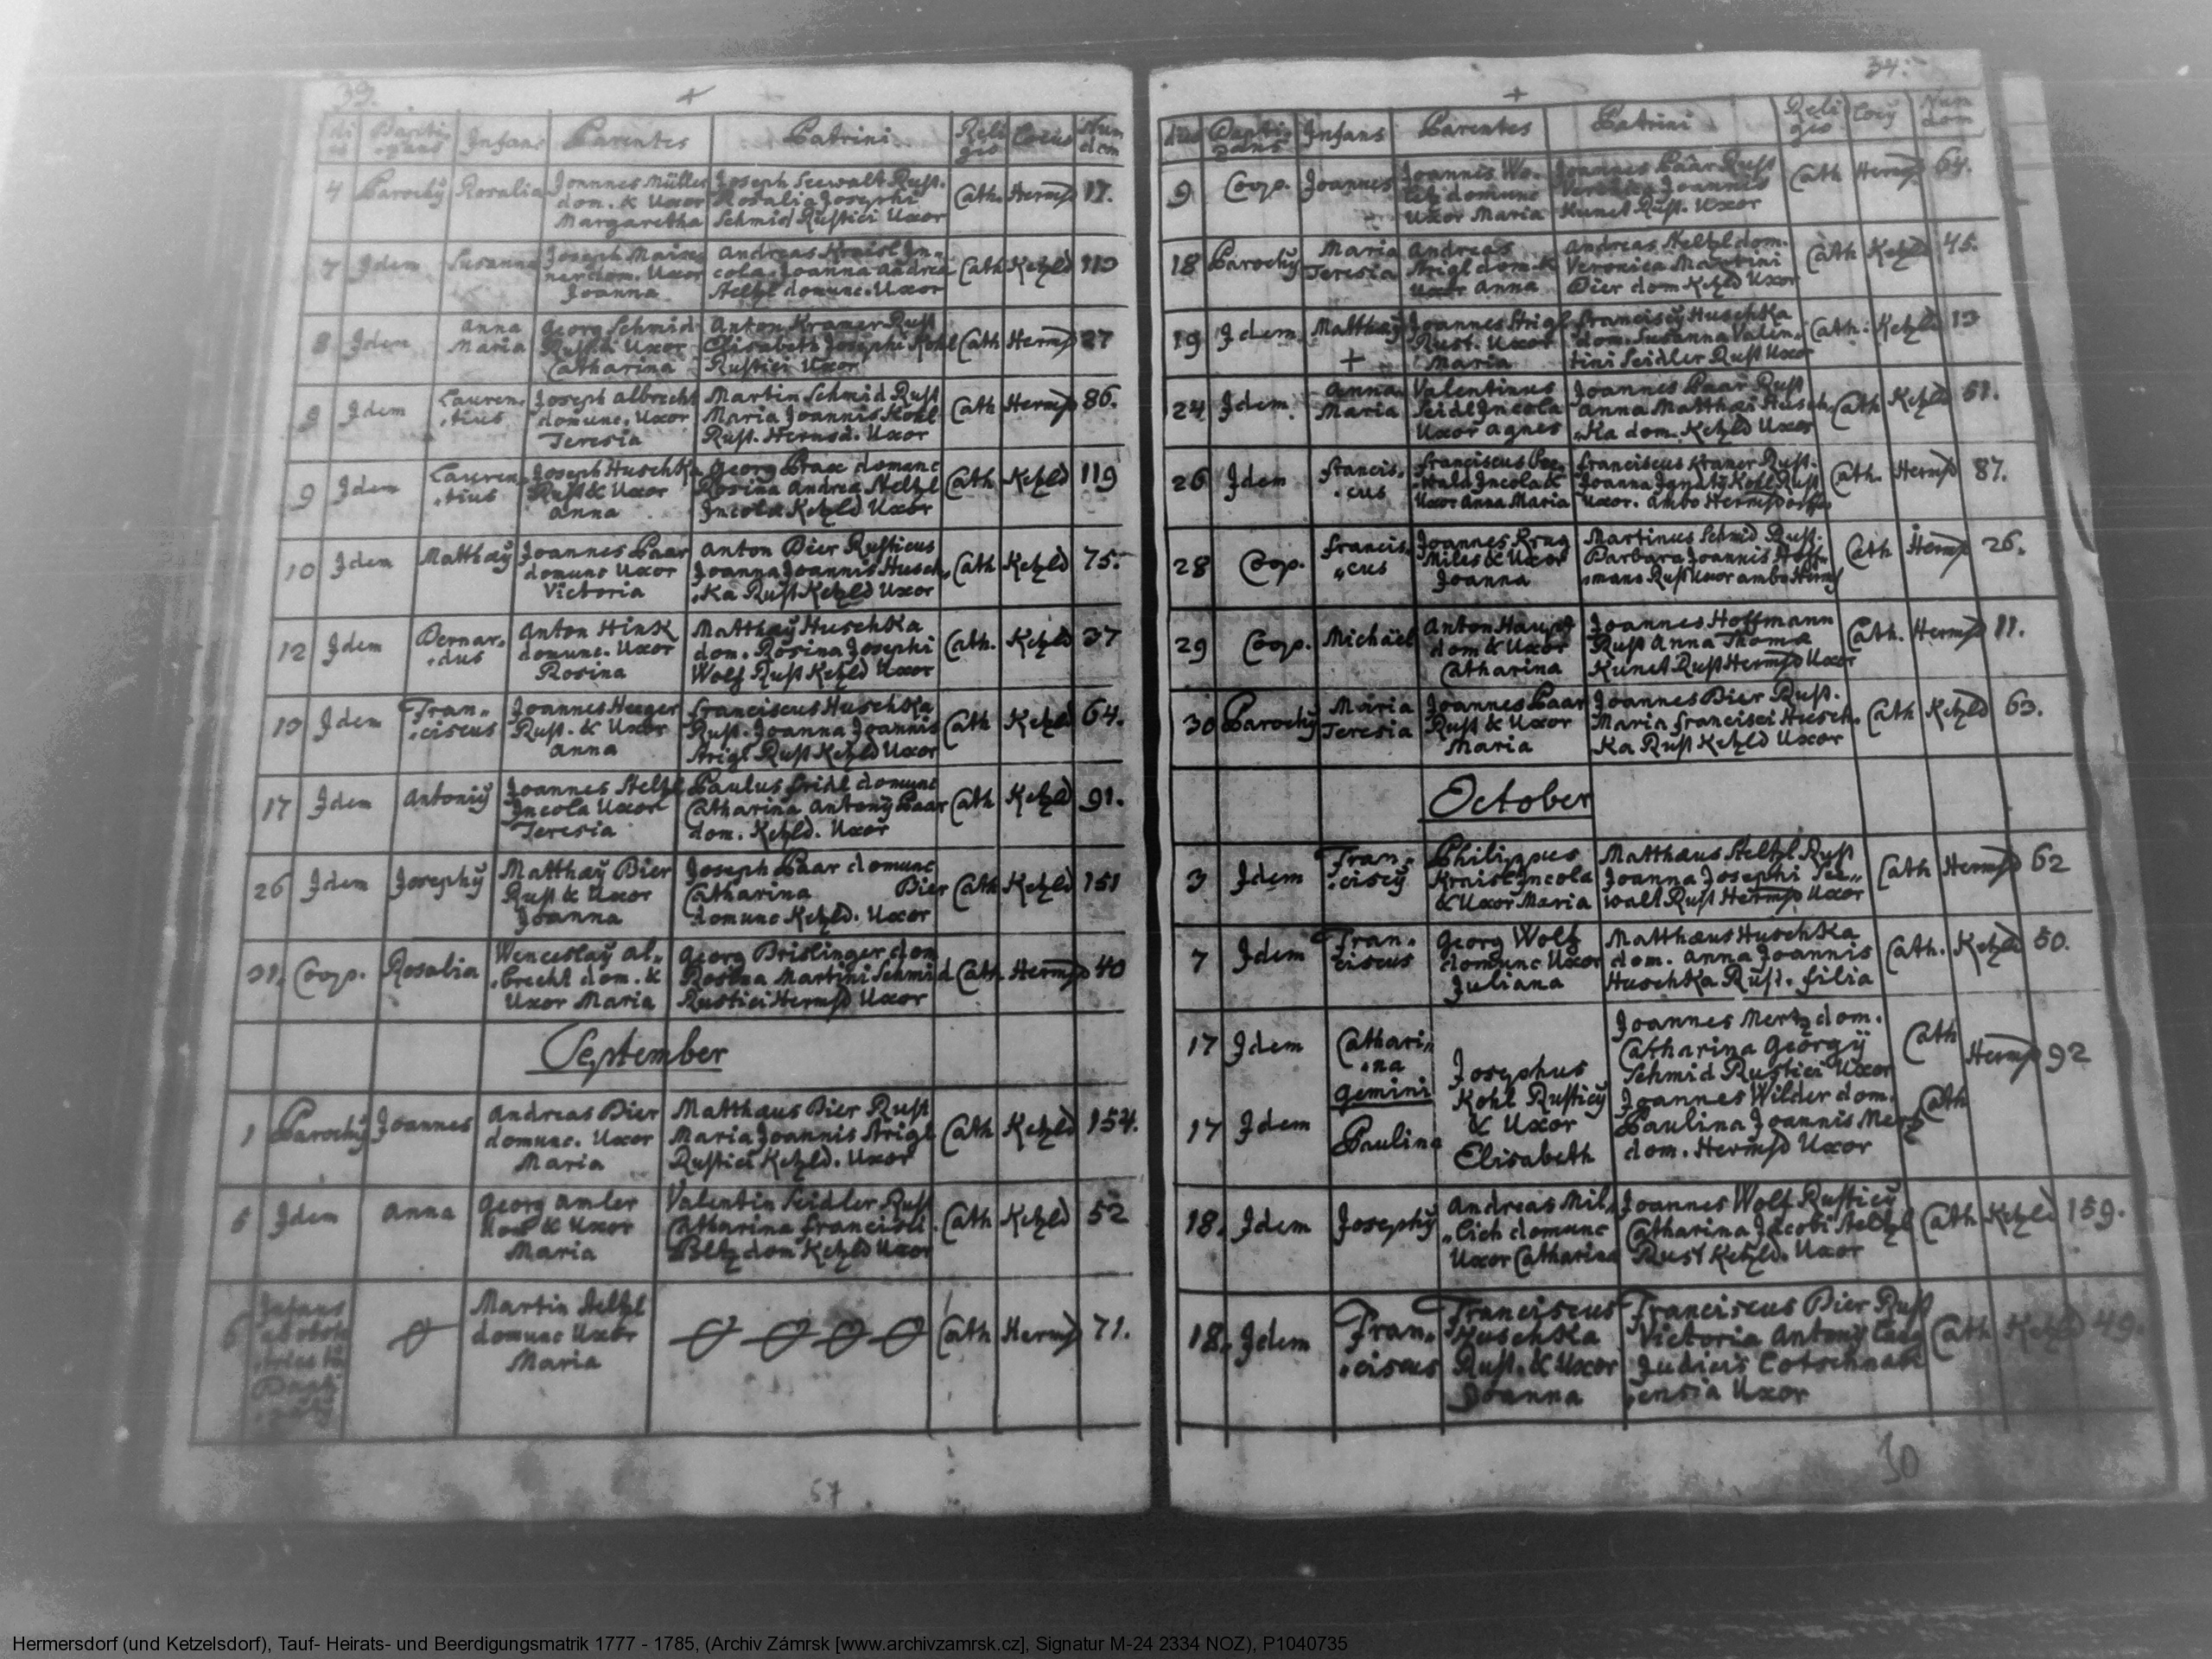 33.
di es | Bapti zans | Infans | Parentes | Patrini | Reli gio | Locus | Num dom
4 | Parochÿ | Rosalia | Joannes Müller dom. & Uxor Margaretha | Joseph Seewalt Rust. Rosalia Josephi Schmid Rustici Uxor | Cath. | Hermsd | 17.
7 | Idem | Susanna | Joseph Maix ner dom. Uxor Joanna | Andreas Kraisl In- cola. Joanna Andreæ Steltzl domunc. Uxor | Cath | Ketzld | 113
8 | Idem | Anna Maria | Georg Schmid Rust. & Uxor Catharina | Anton Kramer Rust Elisabeth Josephi Kohl Rustici Uxor | Cath | Hermsd | 27
9 | Idem | Lauren- tius | Joseph Albrecht domunc. Uxor Teresia | Martin Schmid Rust Maria Joannis Kohl Rust. Hermsd. Uxor | Cath | Hermsd | 86.
9 | Idem | Lauren- tius | Joseph Huschka Rust & Uxor Anna | Georg Prax domunc Rosina Andreæ Steltzl Incola Ketzld Uxor | Cath | Ketzld | 119
10 | Idem | Matthæÿ | Joannes Paar domunc Uxor Victoria | Anton Bier Rusticus Joanna Joannis Husch- ka Rust Ketzld Uxor | Cath | Ketzld | 75.
12 | Idem | Bernar- dus | Anton Hink domunc. Uxor Rosina | Matthæÿ Huschka dom. Rosina Josephi Wolf Rust Ketzld Uxor | Cath. | Ketzld | 37
13 | Idem | Fran- ciscus | Joannes Heeger Rust. & Uxor Anna | Franciscus Huschka Rust. Joanna Joannis Strigl Rust Ketzld Uxor | Cath | Ketzld | 64.
17 | Idem | Antoniÿ | Joannes Steltzl Incola Uxor Teresia | Paulus Fridl domunc Catharina Antonÿ Paar dom. Ketzld. Uxor | Cath | Ketzld | 91.
26 | Idem | Josephÿ | Matthæÿ Bier Rust & Uxor Joanna | Joseph Paar domunc Catharina Bier domunc Ketzld. Uxor | Cath | Ketzld | 151
31. | Coop. | Rosalia | Wenceslaÿ Al- brecht dom. & Uxor Maria | Georg Brislinger dom Rosina Martini Schmid Rustici Hermsd Uxor | Cath. | Hermsd | 40
September
1 | Parochÿ | Joannes | Andreas Bier domunc. Uxor Maria | Matthæus Bier Rust Maria Joannis Strigl Rustici Ketzld. Uxor | Cath | Ketzld | 154.
5 | Idem | Anna | Georg Amler dom & Uxor Maria | Valentin Seidler Rust Catharina Francisci Peltz dom Ketzld Uxor | Cath | Ketzld | 52
6 | Infans ab obste trice Bapti | Martin Steltzl domunc Uxor Maria | Cath | Hermsd | 71.
57
34.
dies | Bapti zans | Infans | Parentes | Patrini | Reli gio | Locÿ | Num dom
9 | Coop. | Joannes | Joannes domunc Uxor Maria | Joannes Paar Rust Veronica Joannis Kunet Rust. Uxor | Cath | Hermsd | 64.
18 | Parochÿ | Maria Teresia | Andreas Strigl dom & Uxor Anna | Andreas Steltzl dom. Veronica Martini Bier dom Ketzld Uxor | Cath | Ketzld | 45.
19 | Idem | Matthæÿ + | Joannes Strigl Rust. Uxor Maria | Franciscÿ Huschka dom. Susanna Valen- tini Seidler Rust Uxor | Cath. | Ketzld | 13
24 | Idem. | Anna Maria | Valentinus Seidl Incola Uxor Agnes | Joannes Paar Rust Anna Matthæi Husch- ka dom. Ketzld Uxor | Cath | Ketzld | 61.
26 | Idem | Francis- cus | Franciscus Incola & Uxor Anna Maria | Franciscus Kramer Rust. Joanna Ignatÿ Kohl Rust Uxor. ambo Hermsdorff | Cath. | Hermsd | 87.
28 | Coop. | Francis- cus | Joannes Krug Miles & Uxor Joanna | Martinus Schmid Rust. Barbara Joannis Hoff- mans Rust Uxor ambo Hermsd | Cath | Hermsd | 26.
29 | Coop. | Michäel | Anton Haupt dom & Uxor Catharina | Joannes Hoffmann Rust Anna Thomæ Kunet Rust Hermsd Uxor | Cath. | Hermsd | 11.
30 | Parochÿ | Maria Teresia | Joannes Paar Rust & Uxor Maria | Joannes Bier Rust. Maria Francisci Husch- ka Rust Ketzld Uxor | Cath | Ketzld | 63.
October
3 | Idem | Fran- ciscÿ | Philippus Kraisl Incola & Uxor Maria | Matthæus Steltzl Rust Joanna Josephi See- walt Rust Hermsd Uxor | Cath | Hermsd | 62
7 | Idem | Fran- ciscus | Georg Wolf domunc Uxor Juliana | Matthæus Huschka dom. Anna Joannis Huschka Rust. filia | Cath. | Ketzld | 50.
17 | Idem | Cathari- na | Gemini | Josephus Kohl Rusticÿ & Uxor Elisabeth | Joannes Mertz dom. Catharina Georgÿ Schmid Rustici Uxor | Cath | Hermsd | 92
17 | Idem | Paulina | Joannes Wilder dom. Paulina Joannis Mertz dom. Hermsd Uxor | Cath
18. | Idem | Josephÿ | Andreas Mil- lich domunc Uxor Catharina | Joannes Wolf Rusticÿ Catharina Jacobi Steltzl Rust Ketzld. Uxor | Cath | Ketzld | 159.
18. | Idem | Fran- ciscus | Franciscus Huschka Rust. & Uxor Joanna | Franciscus Bier Rust Victoria Antonÿ Judicis Uxor | Cath | Ketzld | 49.
30
Hermersdorf (und Ketzelsdorf), Tauf- Heirats- und Beerdigungsmatrik 1777 - 1785, (Archiv Zámrsk [www.archivzamrsk.cz], Signatur M-24 2334 NOZ), P1040735